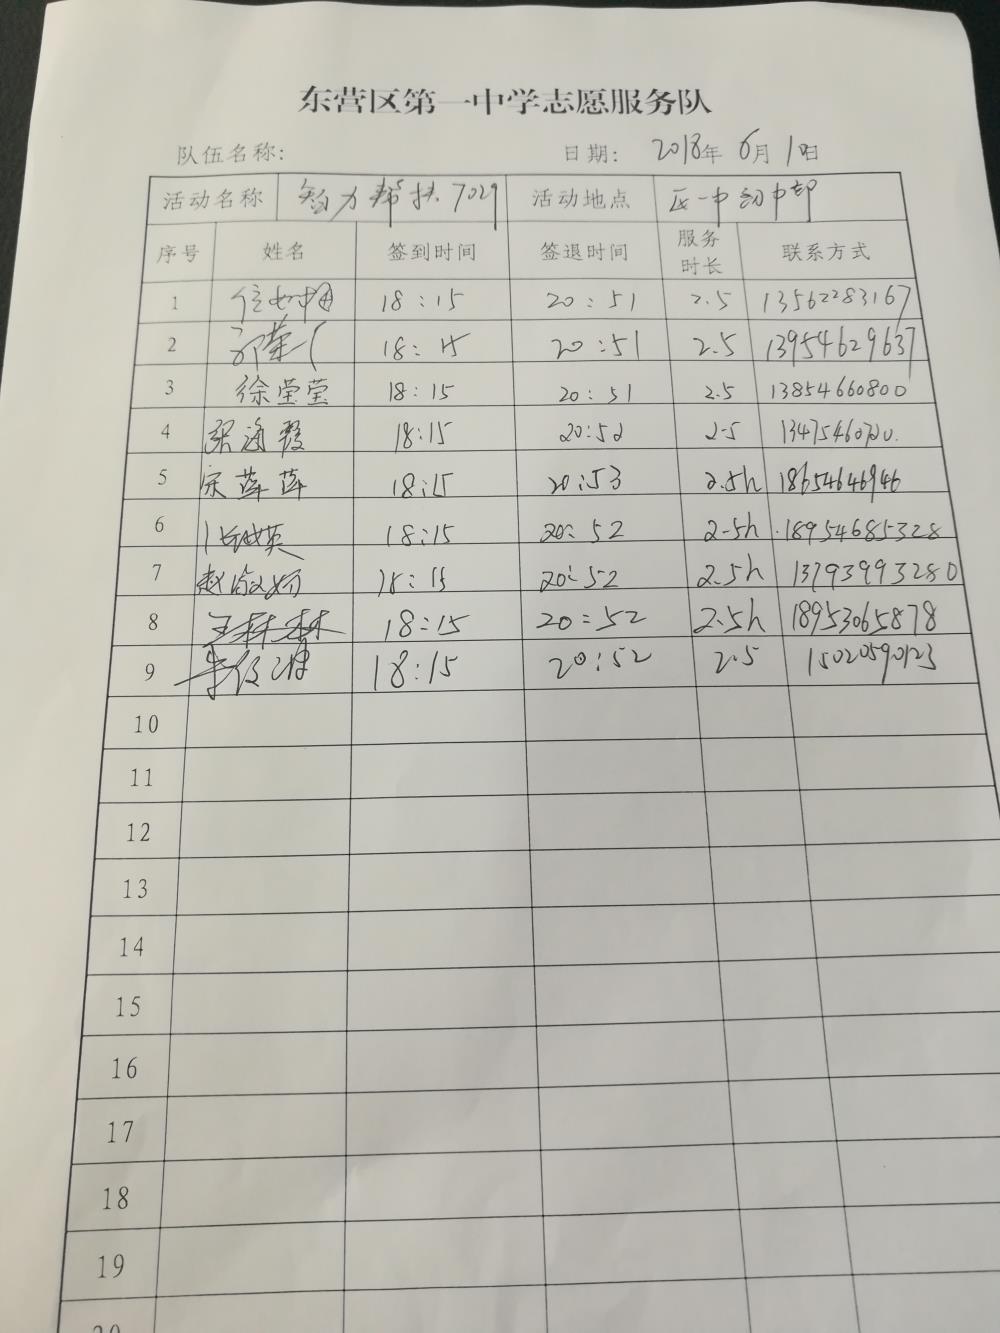 东营区第一中学志愿服务队
队伍名称: 日期: 2018年 6月 1日
活动名称 智力帮扶 7029 活动地点 区一中初中部
序号 姓名 签到时间 签退时间 服务时长 联系方式
1 18:15 20:51 2.5 13562283167
2 18:15 20:51 2.5 13954629637
3 徐莹莹 18:15 20:51 2.5 13854660800
4 张海霞 18:15 20:52 2.5
5 宋萍萍 18:15 20:53 2.5h 18654646946
6 18:15 20:52 2.5h 18954685328
7 赵 18:15 20:52 2.5h 13793993280
8 王林林 18:15 20:52 2.5h 18953065878
9 李 18:15 20:52 2.5 15020590123
10
11
12
13
14
15
16
17
18
19
20